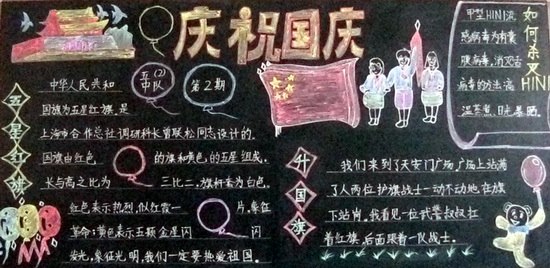 庆祝国庆
五(2)中队
第2期
五星红旗
中华人民共和
国旗为五星红旗,是
上海市合作总社调研科长曾联松同志设计的。
国旗由红色 的旗和黄色的五星组成。
长与高之比为 三比二,旗杆套为白色。
红色表示热烈,似红霞一 片,象征
革命;黄色表示五颗金星闪 闪
发光,象征光明,我们一定要热爱祖国。
升国旗
我们来到了天安门广场,广场上站满
了人两位护旗战士一动不动地在旗
下站岗,我看见一位武警叔叔扛
着红旗,后面跟着一队战士。
如何杀灭HINI
甲型HINI流
感病毒为有囊
膜病毒,消灭
病毒的方法:高
温蒸煮、日光暴晒。